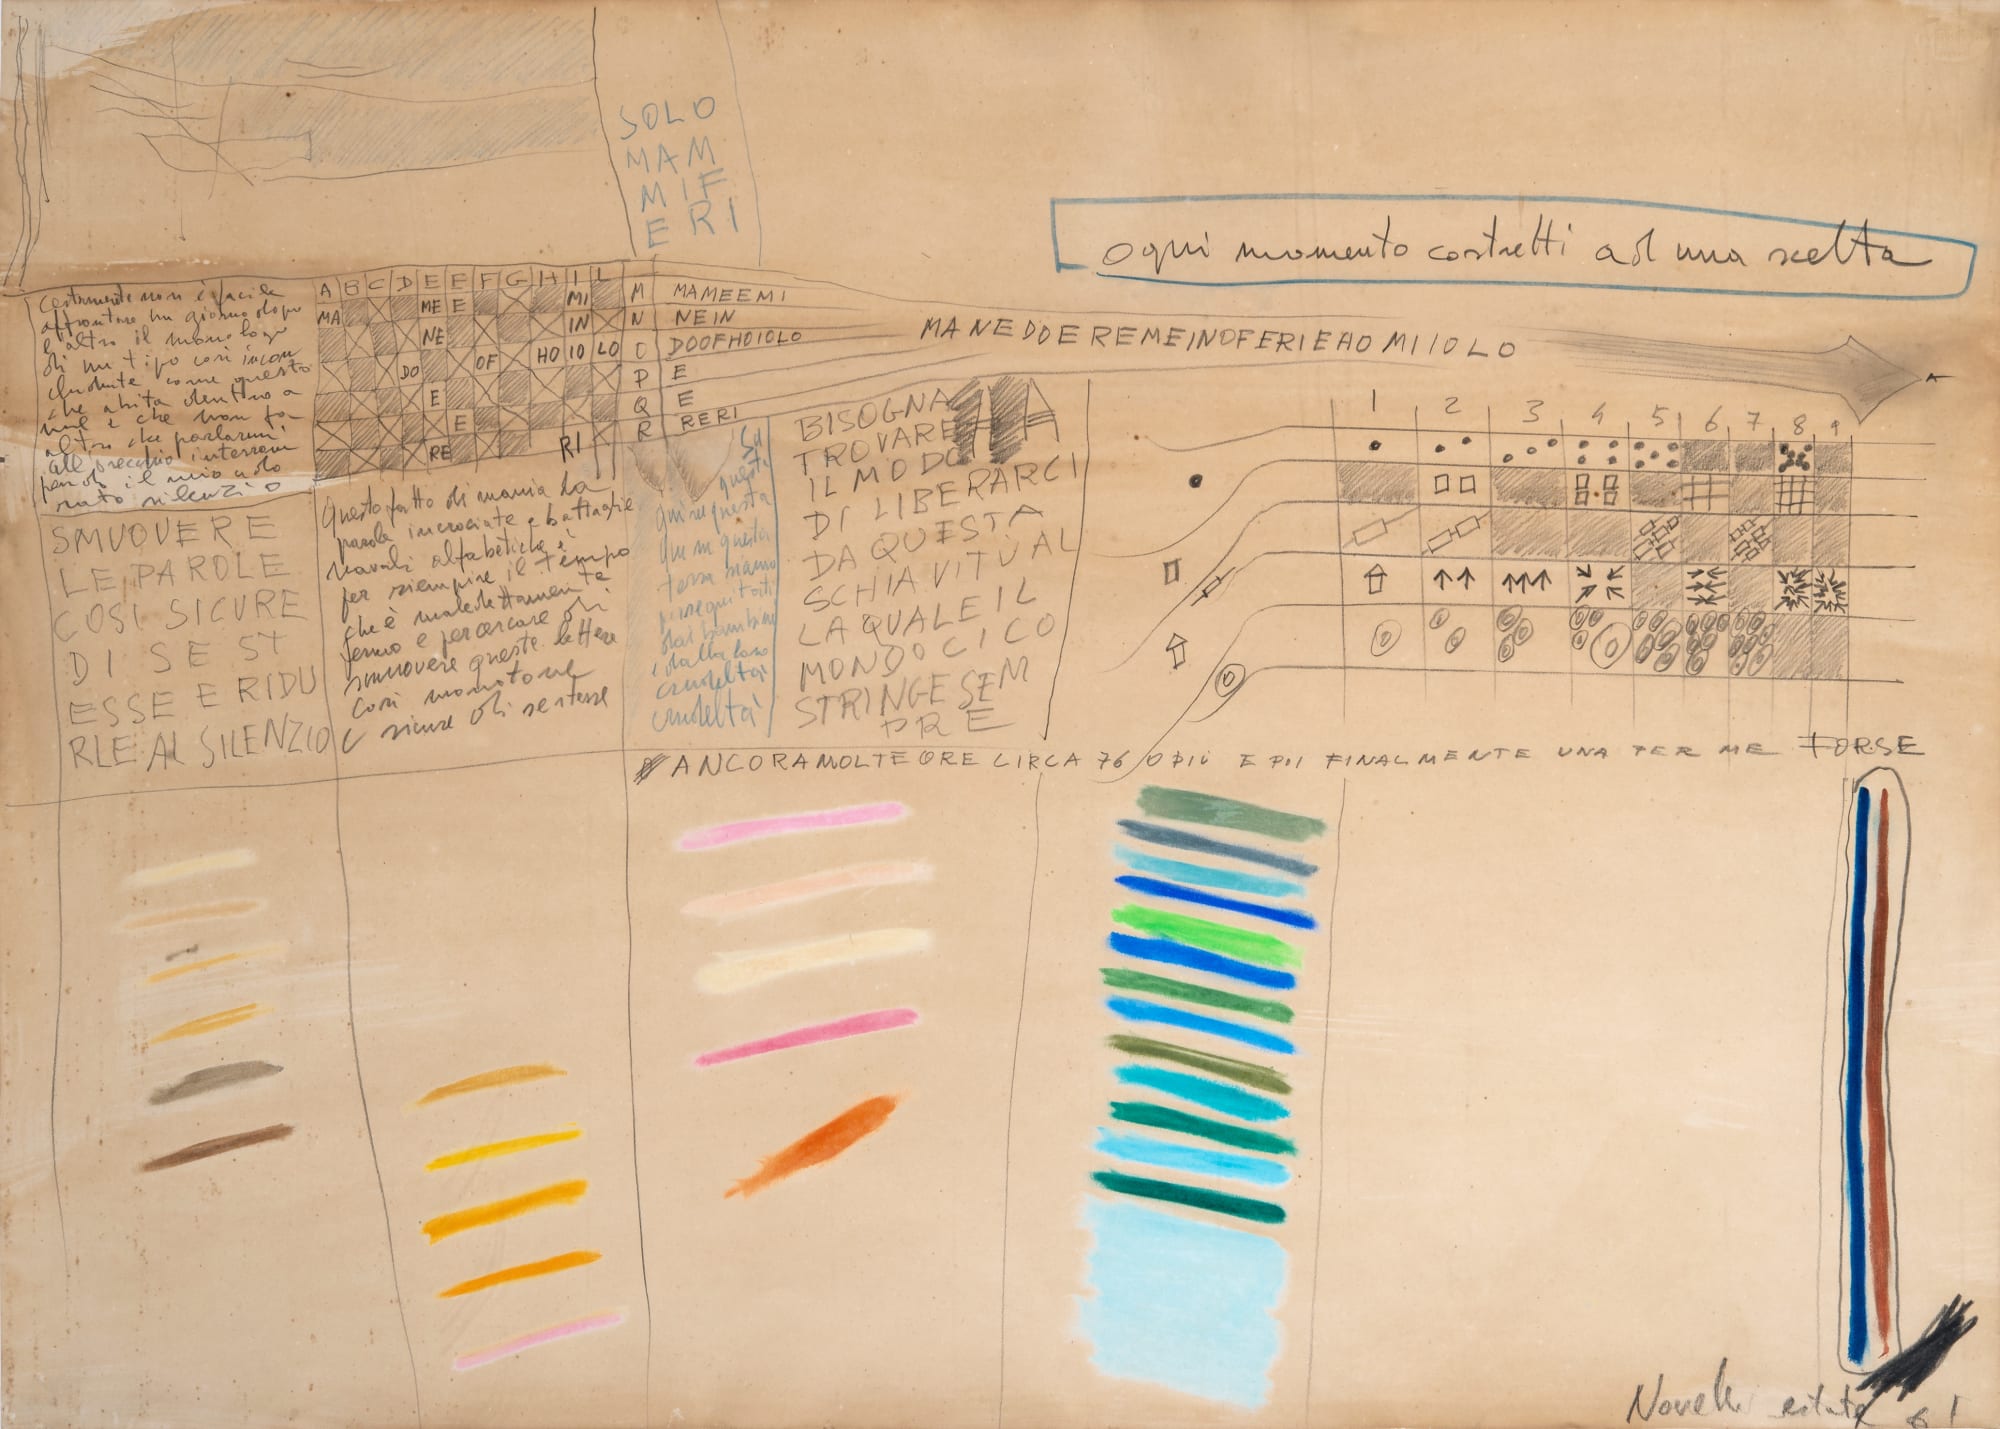 SOLO
MAM
MIF
E RI
ogni momento costretti ad una scelta
certamente non è facile
affrontare un giorno dopo
l'altro il monologo
di un tipo così incon
cludente come questo
che abita dentro a
me e che non fa
altro che parlarmi
all'orecchio interrom
pendo il mio
silenzio
A B C D E E F G H I L
ME E MI
MA NE IN
DO OF HO IO LO
E
E
RE RI
M MAMEEMI
N NEIN
O DOOFHOIOLO
P E
Q E
R RERI
MANEDOEREMEINOFERIEHOMIIOLO
A
SMUOVERE
LE PAROLE
COSI SICURE
DI SE ST
ESSE E RIDU
RLE AL SILENZIO
Questo fatto di mania da
parole incrociate e battaglie
navali alfabetiche è
per riempire il tempo
che è maledettamente
fermo e per cercare di
smuovere queste lettere
così monotone
e sicure di se stesse
su
questa
qui su questa
terra siamo
perseguitati
dai bambini
e dalla loro
crudeltà
crudeltà
BISOGNA
TROVARE
IL MODO
DI LIBERARCI
DA QUESTA
SCHIAVITU AL
LA QUALE IL
MONDO CI CO
STRINGE SEM
PRE
1 2 3 4 5 6 7 8 9
ANCORA MOLTE ORE CIRCA 76 O PIÙ E PII FINALMENTE UNA PER ME FORSE
Novelli estate 61